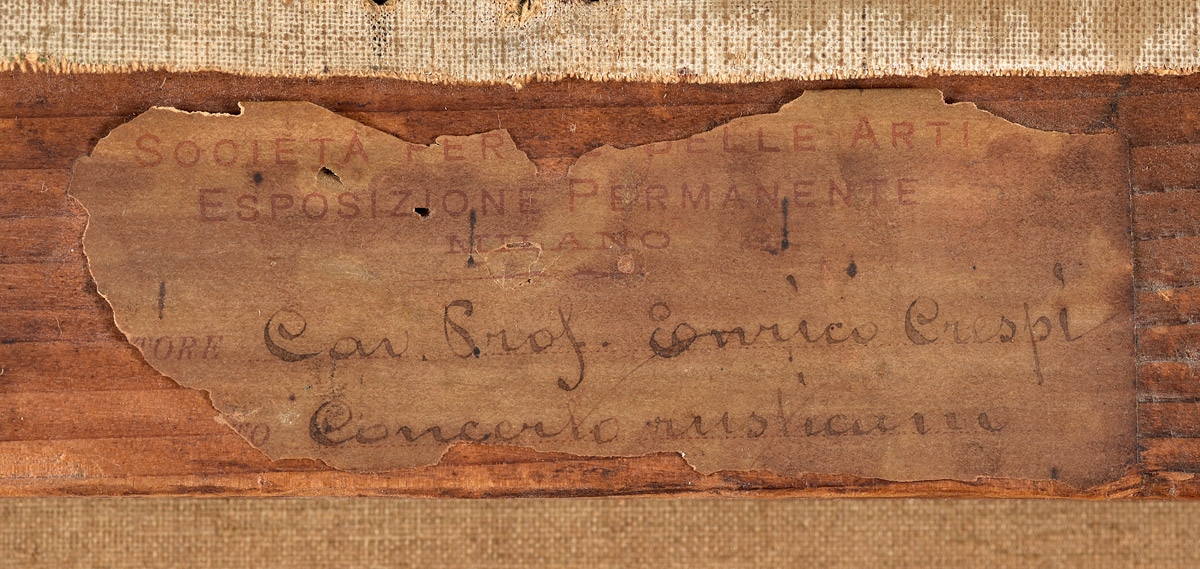 SOCIETÀ PER DELLE ARTI
ESPOSIZIONE PERMANENTE
MILANO
TORE Cav. Prof. Enrico Crespi
TO Concerto rusticano